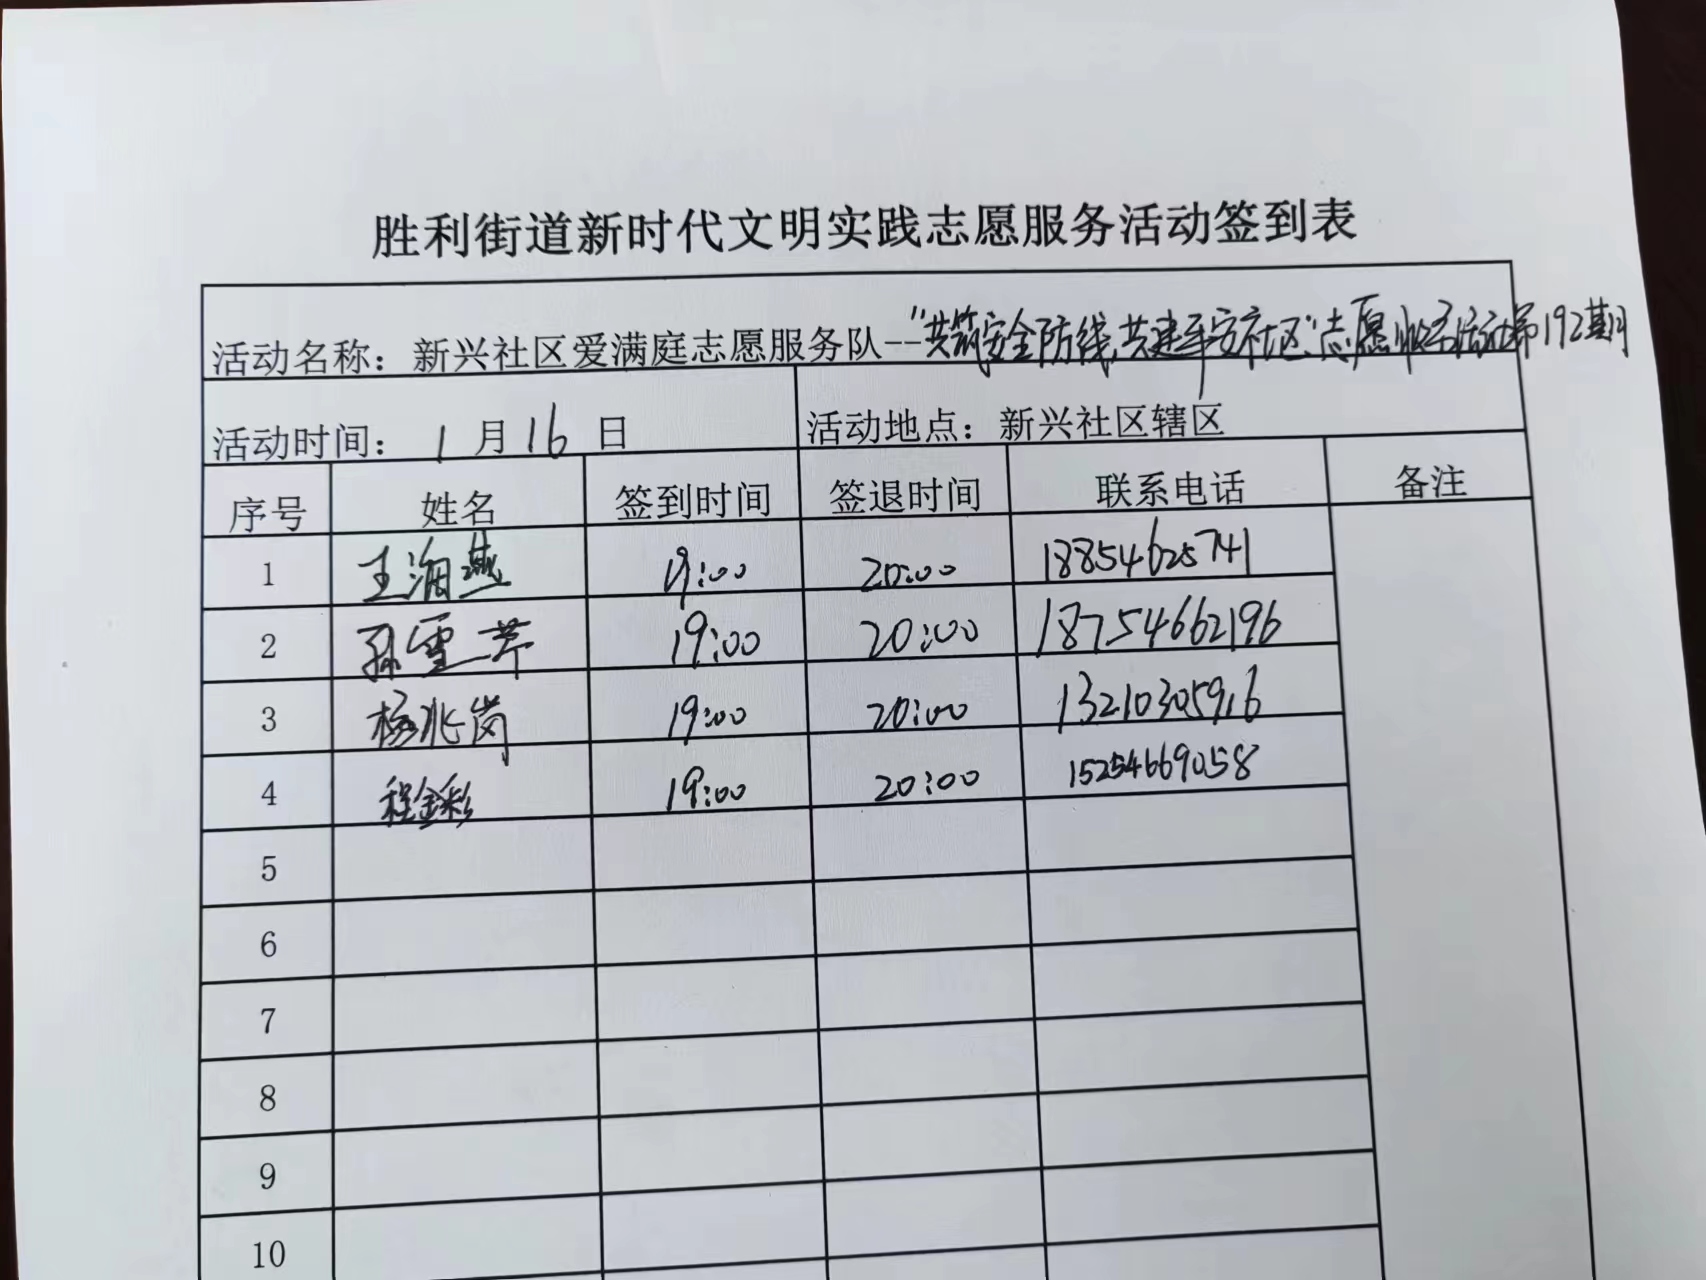 胜利街道新时代文明实践志愿服务活动签到表
活动名称：新兴社区爱满庭志愿服务队--“共筑安全防线,共建平安社区”志愿服务活动第192期
活动时间： 1 月 16 日 活动地点：新兴社区辖区
序号 姓名 签到时间 签退时间 联系电话 备注
1 王海燕 19:00 20:00 18854625741
2 孙雪芹 19:00 20:00 18754662196
3 杨兆岗 19:00 20:00 13210305916
4 程金彩 19:00 20:00 15254669058
5
6
7
8
9
10